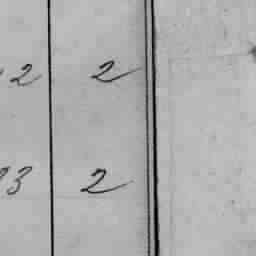 2 2
3 2